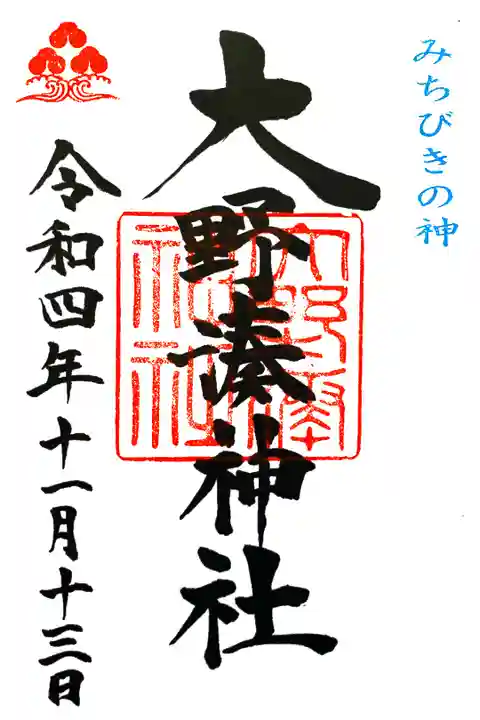 みちびきの神
大野湊神社
大野湊
神社
令和四年十一月十三日